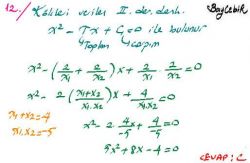 Bağlebik
12./ Kökleri verilen II. der. denk.
x² - Tx + Ç = 0 ile bulunur
Toplam çarpım
x² - (2/x₁ + 2/x₂)x + 2/x₁ · 2/x₂ = 0
x² - 2((x₁+x₂)/(x₁.x₂))x + 4/(x₁.x₂) = 0
x₁+x₂ = 4
x₁.x₂ = -5
x² - 2·4x/-5 + 4/-5 = 0
5x² + 8x - 4 = 0
CEVAP: C